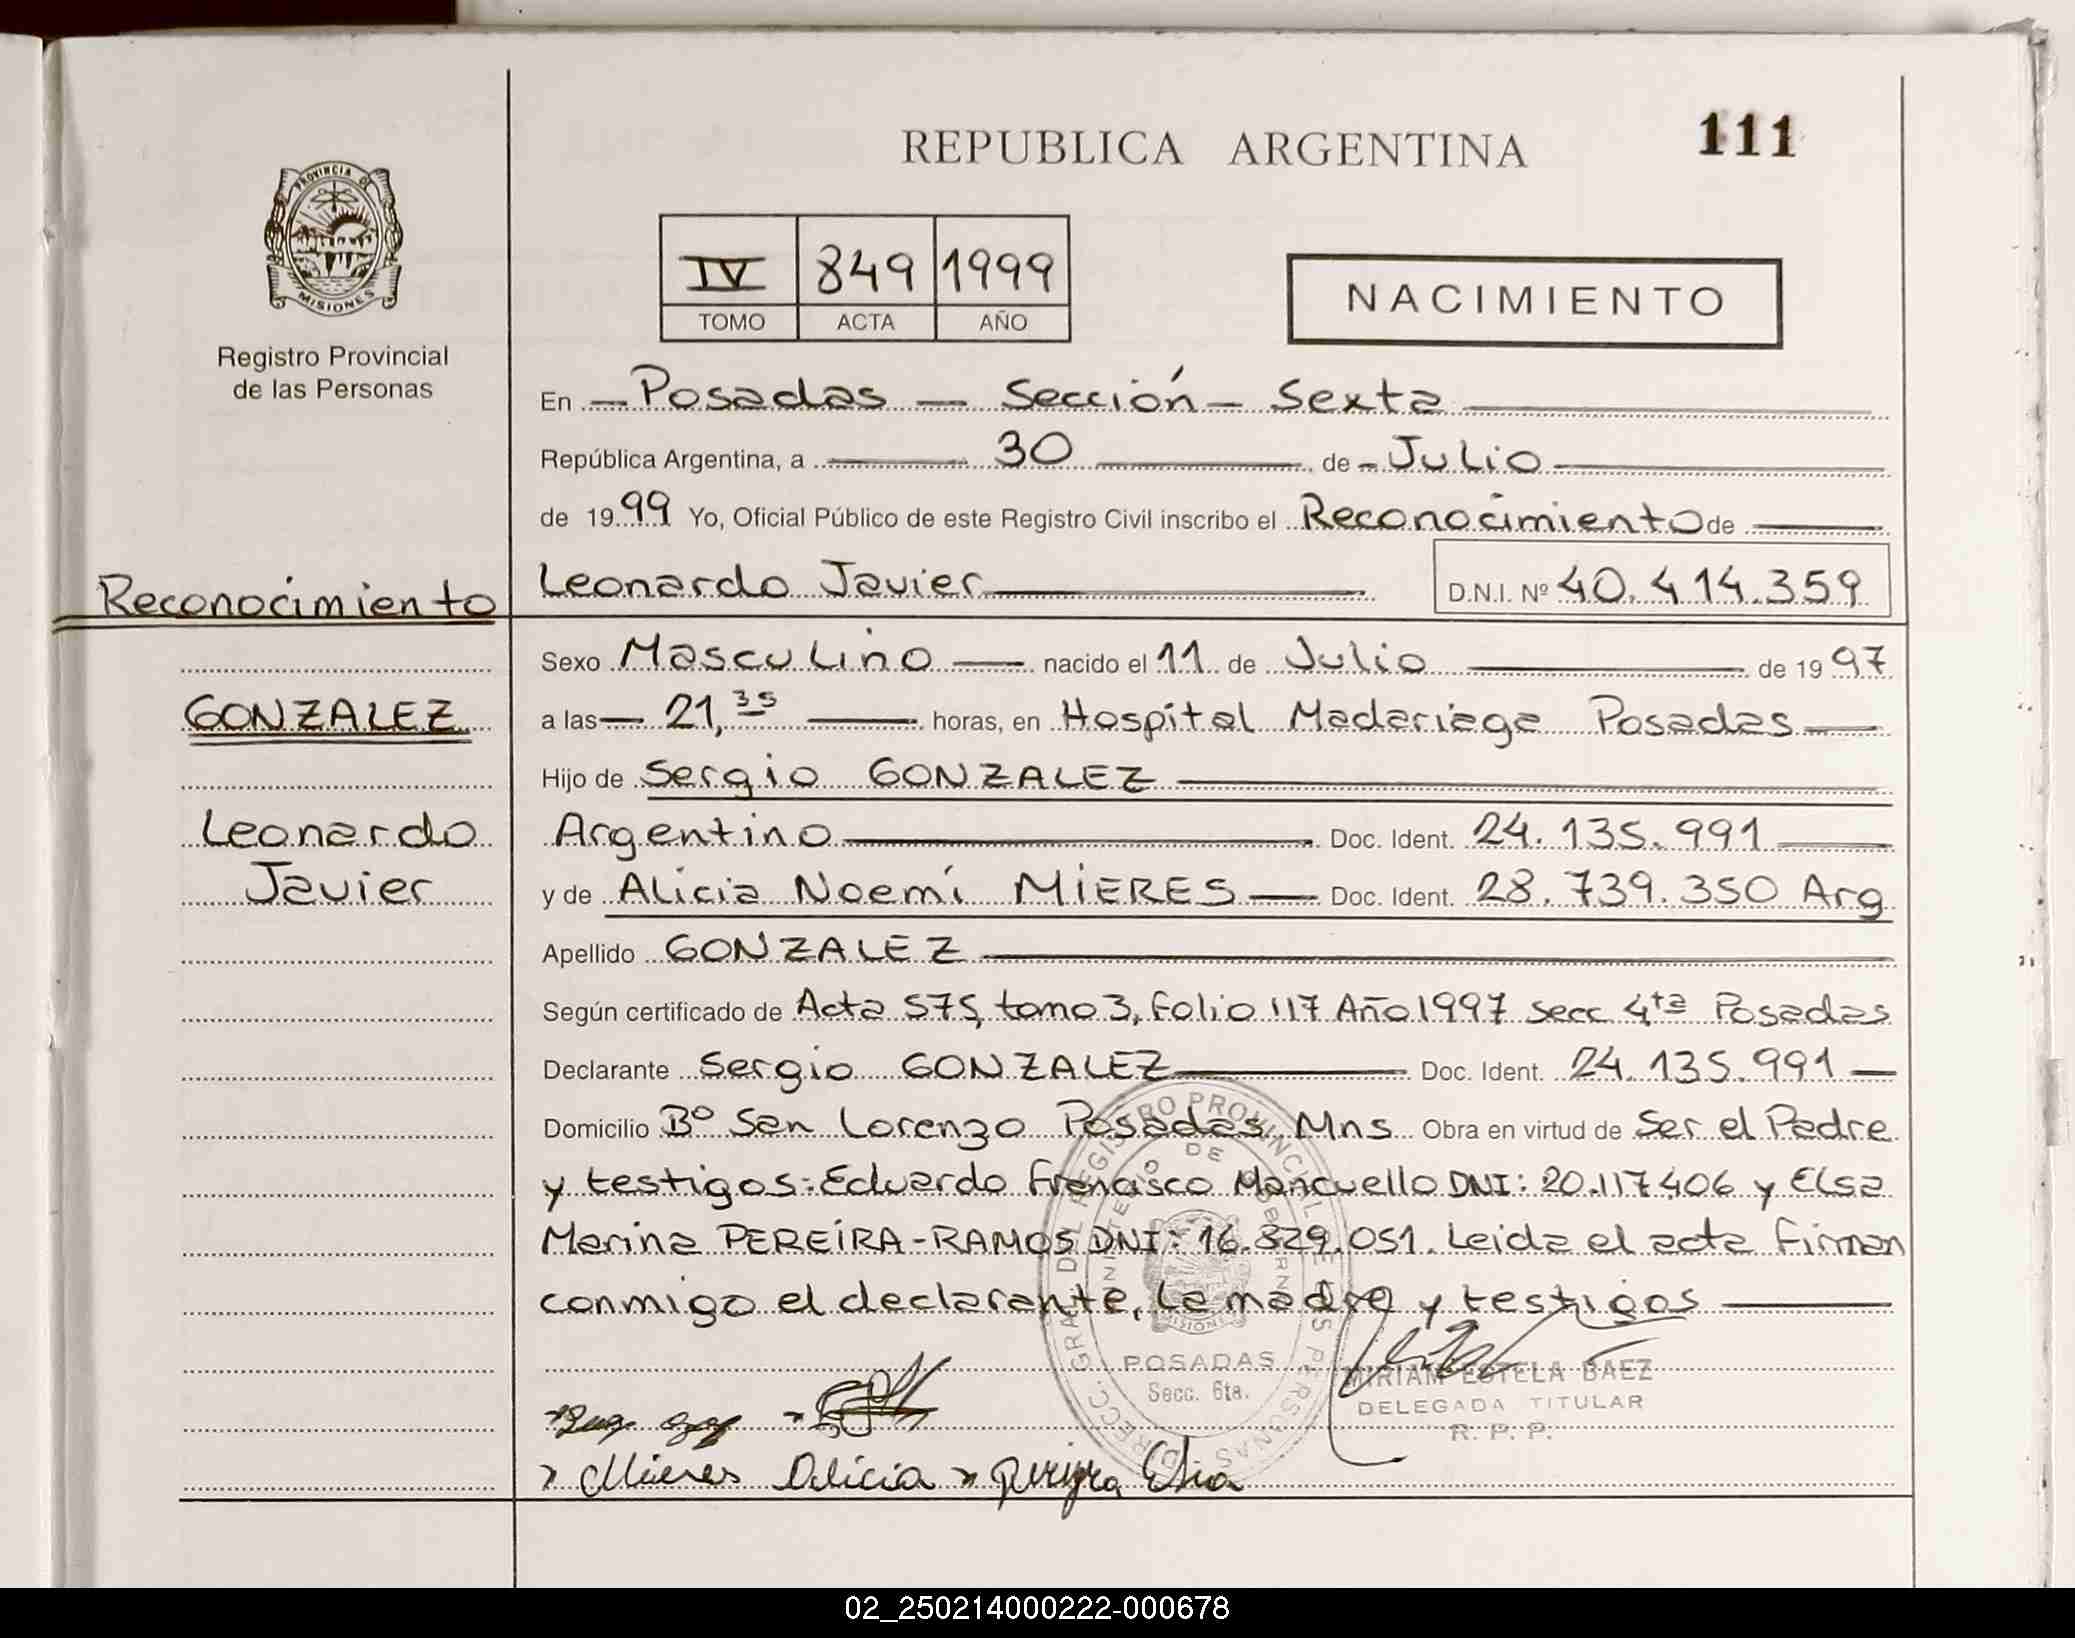 REPUBLICA ARGENTINA
111
PROVINCIA DE
MISIONES
Registro Provincial
de las Personas
IV 849 1999
TOMO ACTA AÑO
NACIMIENTO
En Posadas — Sección — Sexta
República Argentina, a 30 de Julio
de 1999 Yo, Oficial Público de este Registro Civil inscribo el Reconocimiento de
Reconocimiento
Leonardo Javier D.N.I. Nº 40.414.359
Sexo Masculino nacido el 11 de Julio de 1997
GONZALEZ
a las 21,35 horas, en Hospital Madariaga Posadas
Hijo de Sergio GONZALEZ
Leonardo
Argentino Doc. Ident. 24.135.991
Javier
y de Alicia Noemí MIERES Doc. Ident. 28.739.350 Arg
Apellido GONZALEZ
Según certificado de Acta 575, tomo 3, Folio 117 Año 1997 secc 4ta Posadas
Declarante Sergio GONZALEZ Doc. Ident. 24.135.991
Domicilio Bº San Lorenzo Posadas Mns Obra en virtud de Ser el Padre
y testigos: Eduardo Francisco Mancuello DNI: 20.117.406 y Elsa
Marina PEREIRA-RAMOS DNI: 16.829.051. Leida el acta Firman
conmigo el declarante, La madre y testigos
DIRECC. GRAL DEL REGISTRO PROVINCIAL DE LAS PERSONAS
MINISTERIO DE GOBIERNO
MISIONES
POSADAS
Secc. 6ta.
MIRIAM ESTELA BAEZ
DELEGADA TITULAR
R. P. P.
Mieres Alicia Pereyra Elsa
02_250214000222-000678